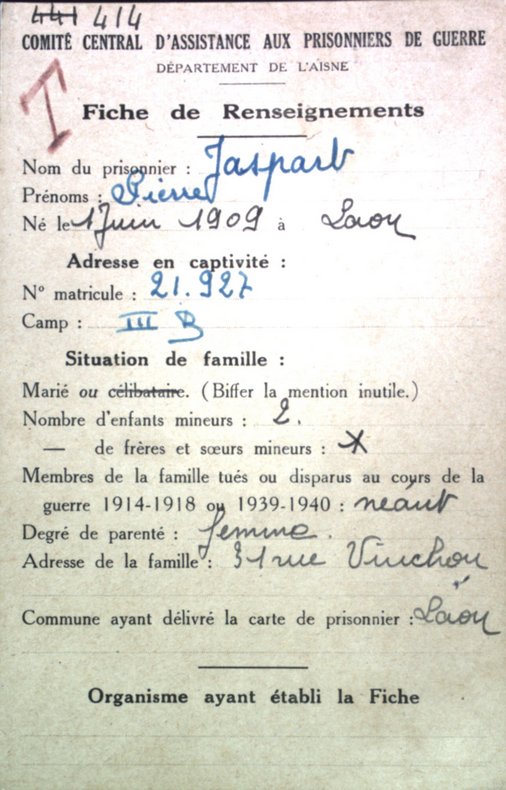 441 414
COMITÉ CENTRAL D'ASSISTANCE AUX PRISONNIERS DE GUERRE
DÉPARTEMENT DE L'AISNE
I
Fiche de Renseignements
Nom du prisonnier : Jaspart
Prénoms : Pierre
Né le 1 Juin 1909 à Laon
Adresse en captivité :
N° matricule : 21.927
Camp : III B
Situation de famille :
Marié ou célibataire. (Biffer la mention inutile.)
Nombre d'enfants mineurs : 2.
— de frères et sœurs mineurs : X
Membres de la famille tués ou disparus au cours de la
guerre 1914-1918 ou 1939-1940 : néant
Degré de parenté : femme.
Adresse de la famille : 31 rue Vinchon
Commune ayant délivré la carte de prisonnier : Laon
Organisme ayant établi la Fiche